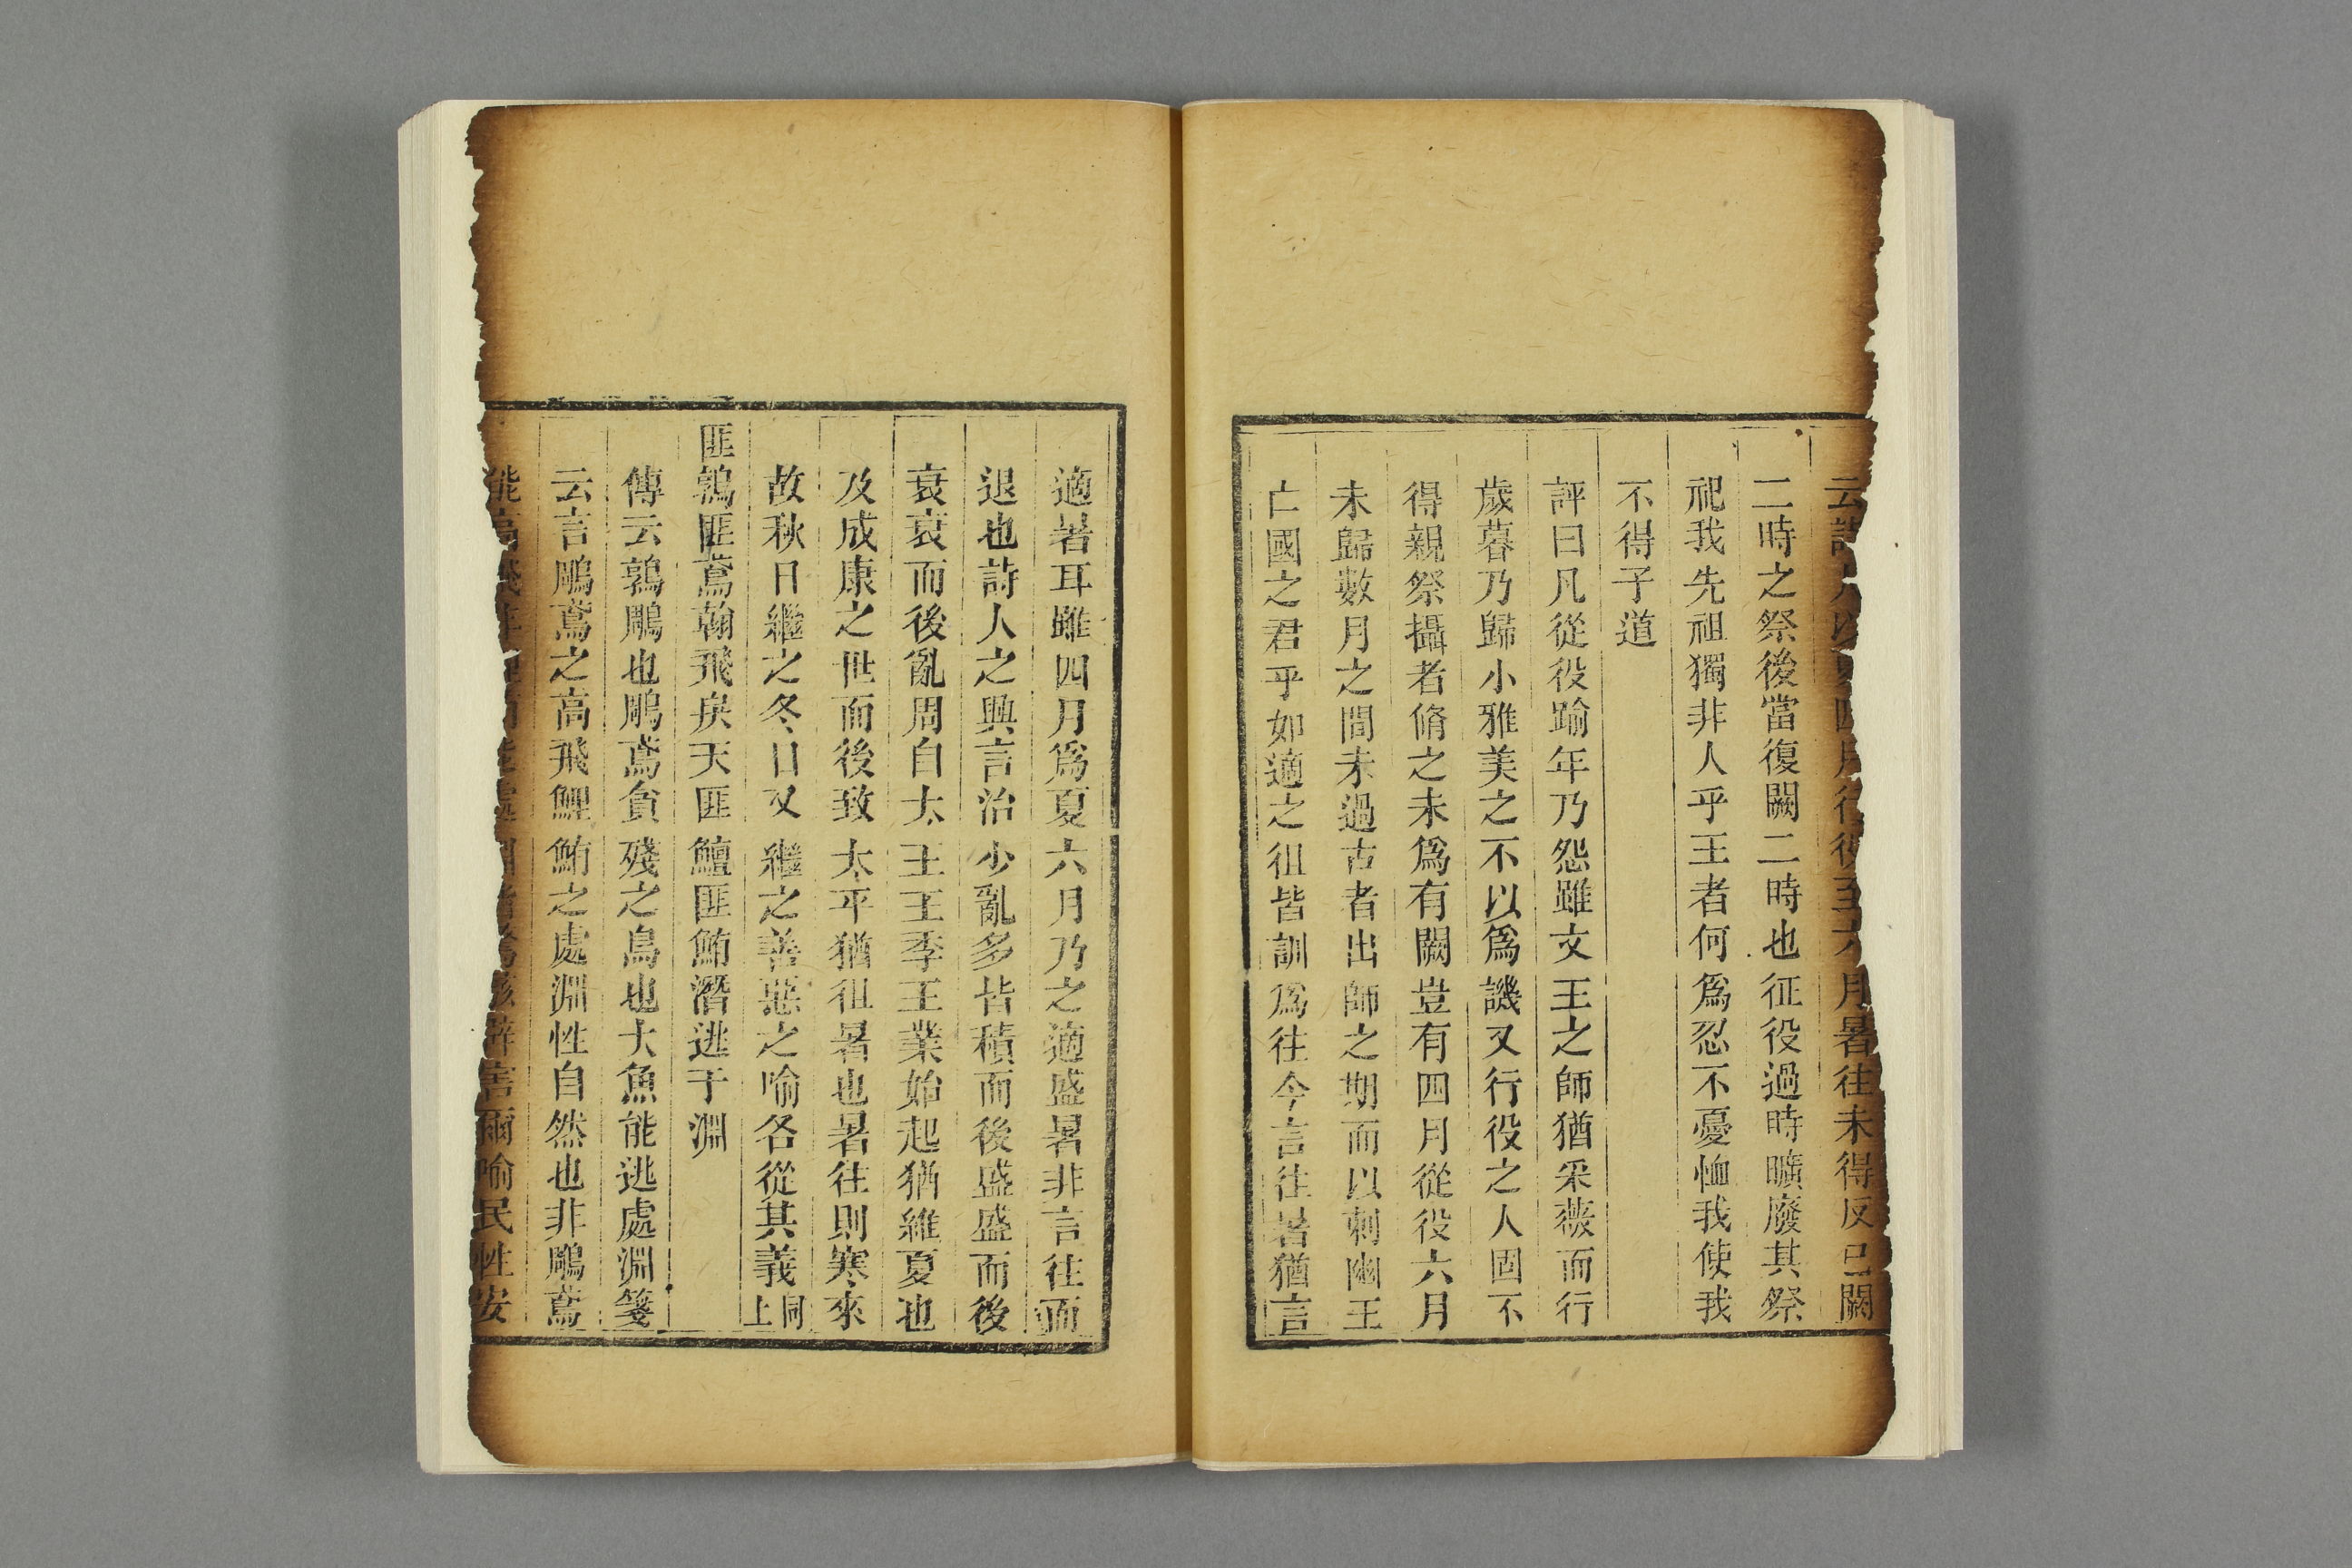 云詩人以夏四月行役至六月暑往未得反已闕
二時之祭後當復闕二時也征役過時曠廢其祭
祀我先祖獨非人乎王者何爲忍不憂恤我使我
不得子道
評曰凡從役踰年乃怨雖文王之師猶采薇而行
歲暮乃歸小雅美之不以爲譏又行役之人固不
得親祭攝者脩之未爲有闕豈有四月從役六月
未歸數月之間未過古者出師之期而以刺幽王
亡國之君乎如適之徂皆訓爲往今言往暑猶言
適暑耳雖四月爲夏六月乃之適盛暑非言往而
退也詩人之興言治少亂多皆積而後盛盛而後
衰衰而後亂周自太王王季王業始起猶維夏也
及成康之世而後致太平猶徂暑也暑往則寒來
故秋日繼之冬日又繼之善惡之喻各從其義同上
匪鶉匪鳶翰飛戾天匪鱣匪鮪潛逃于淵
傳云鶉鵰也鵰鳶貪殘之鳥也大魚能逃處淵箋
云言鵰鳶之高飛鯉鮪之處淵性自然也非鵰鳶
能高飛非鯉鮪能處淵皆驚駭辟害爾喻民性安